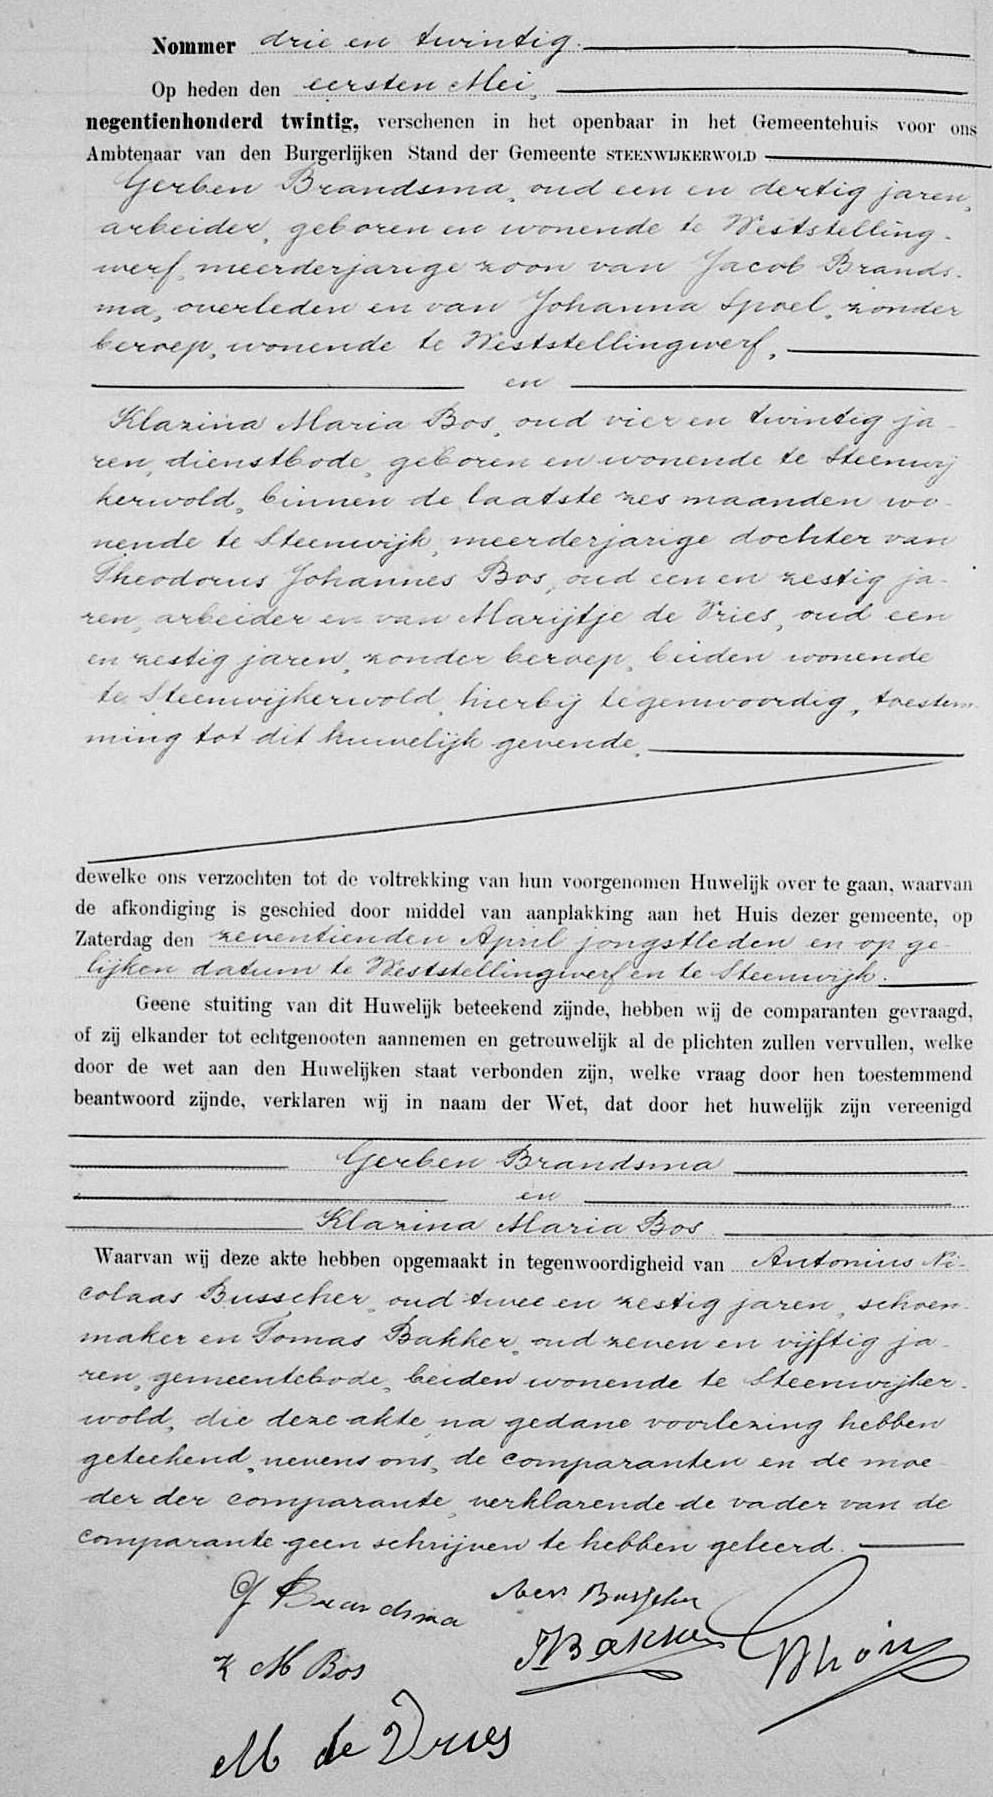 Nommer drie en twintig.
Op heden den eersten Mei,
negentienhonderd twintig, verschenen in het openbaar in het Gemeentehuis voor ons
Ambtenaar van den Burgerlijken Stand der Gemeente STEENWIJKERWOLD
Gerben Brandsma, oud een en dertig jaren,
arbeider, geboren en wonende te Weststelling-
werf, meerderjarige zoon van Jacob Brands-
ma, overleden en van Johanna Spoel, zonder
beroep, wonende te Weststellingwerf,
en
Klazina Maria Bos, oud vier en twintig ja-
ren, dienstbode, geboren en wonende te Steenwij
kerwold, binnen de laatste zes maanden wo-
nende te Steenwijk, meerderjarige dochter van
Theodorus Johannes Bos, oud een en zestig ja-
ren, arbeider en van Marijtje de Vries, oud een
en zestig jaren, zonder beroep, beiden wonende
te Steenwijkerwold, hierbij tegenwoordig, toestem-
ming tot dit huwelijk gevende.
dewelke ons verzochten tot de voltrekking van hun voorgenomen Huwelijk over te gaan, waarvan
de afkondiging is geschied door middel van aanplakking aan het Huis dezer gemeente, op
Zaterdag den zeventienden April jongstleden en op ge-
lijken datum te Weststellingwerf en te Steenwijk.
Geene stuiting van dit Huwelijk beteekend zijnde, hebben wij de comparanten gevraagd,
of zij elkander tot echtgenooten aannemen en getrouwelijk al de plichten zullen vervullen, welke
door de wet aan den Huwelijken staat verbonden zijn, welke vraag door hen toestemmend
beantwoord zijnde, verklaren wij in naam der Wet, dat door het huwelijk zijn vereenigd
Gerben Brandsma
en
Klazina Maria Bos
Waarvan wij deze akte hebben opgemaakt in tegenwoordigheid van Antonius Ni-
colaas Busscher, oud twee en zestig jaren, schoen-
maker en Tomas Bakker, oud zeven en vijftig ja-
ren, gemeentebode, beiden wonende te Steenwijker-
wold, die deze akte, na gedane voorlezing hebben
geteekend, nevens ons, de comparanten en de moe-
der der comparante, verklarende de vader van de
comparante geen schrijven te hebben geleerd.
G Brandsma
Busscher
K M Bos
T Bakker
M de Vries